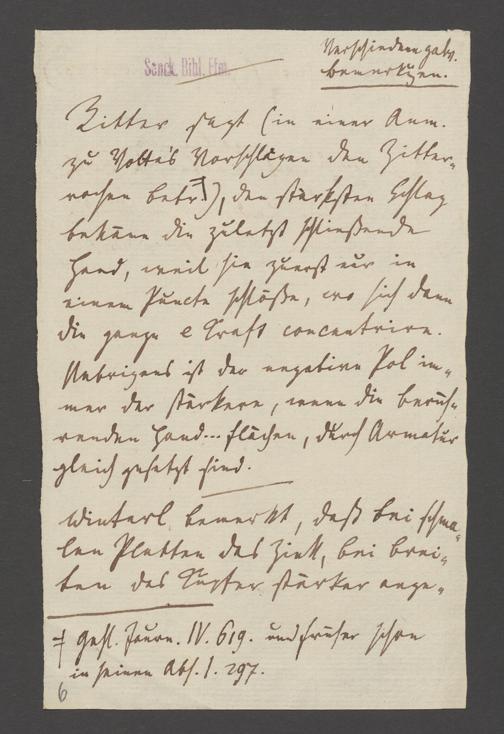 Verschiedene galv.
Bemerkgen.
Senck. Bibl. Ffm.
Ritter sagt (in einer Anm.
zu Volta's Vorschlägen den Zitter-
rochen betr.╪), den stärksten Schlag
bekäme die zuletzt schließende
Hand, weil sie zuerst nur in
einem Puncte schlöße, wo sich dann
die ganze e Kraft concentrire.
Uebrigens ist der negative Pol im-
mer der stärkere, wenn die berüh-
renden Hand... flächen, durch Armatur
gleich gesetzt sind.
Winterl bemerkt, daß bei schma-
len Platten das Zink, bei brei-
ten das Kupfer stärker ange-
╪ Gehl. Journ. IV. 619. und früher schon
in seinen Abh. I. 297.
6